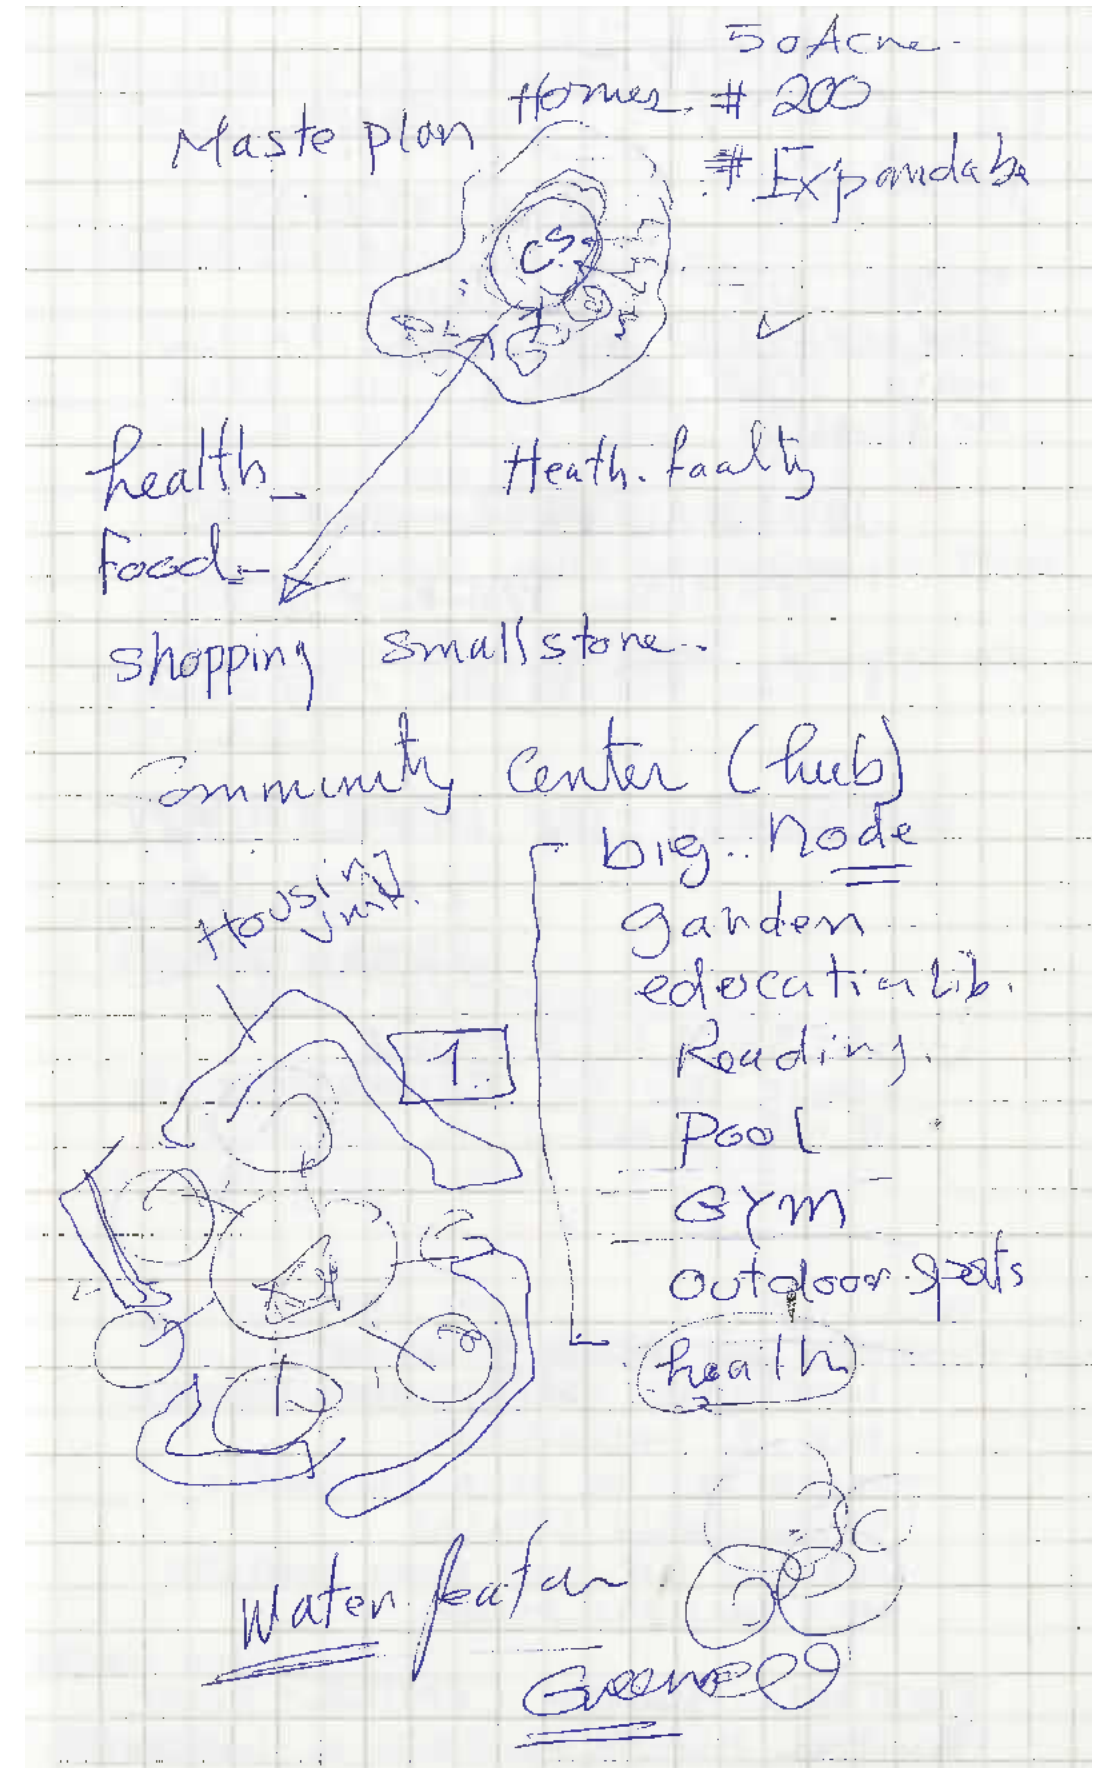 50 Acre
Homes # 200
Maste plan
# Expandabe
CS
health
Heath. facilty
Food
shopping small store..
Community Center (hub)
big.. Node
Housing
unit.
garden
education lib.
Reading.
1
Pool
GYM
outdoor spots
health
Water featur
Green